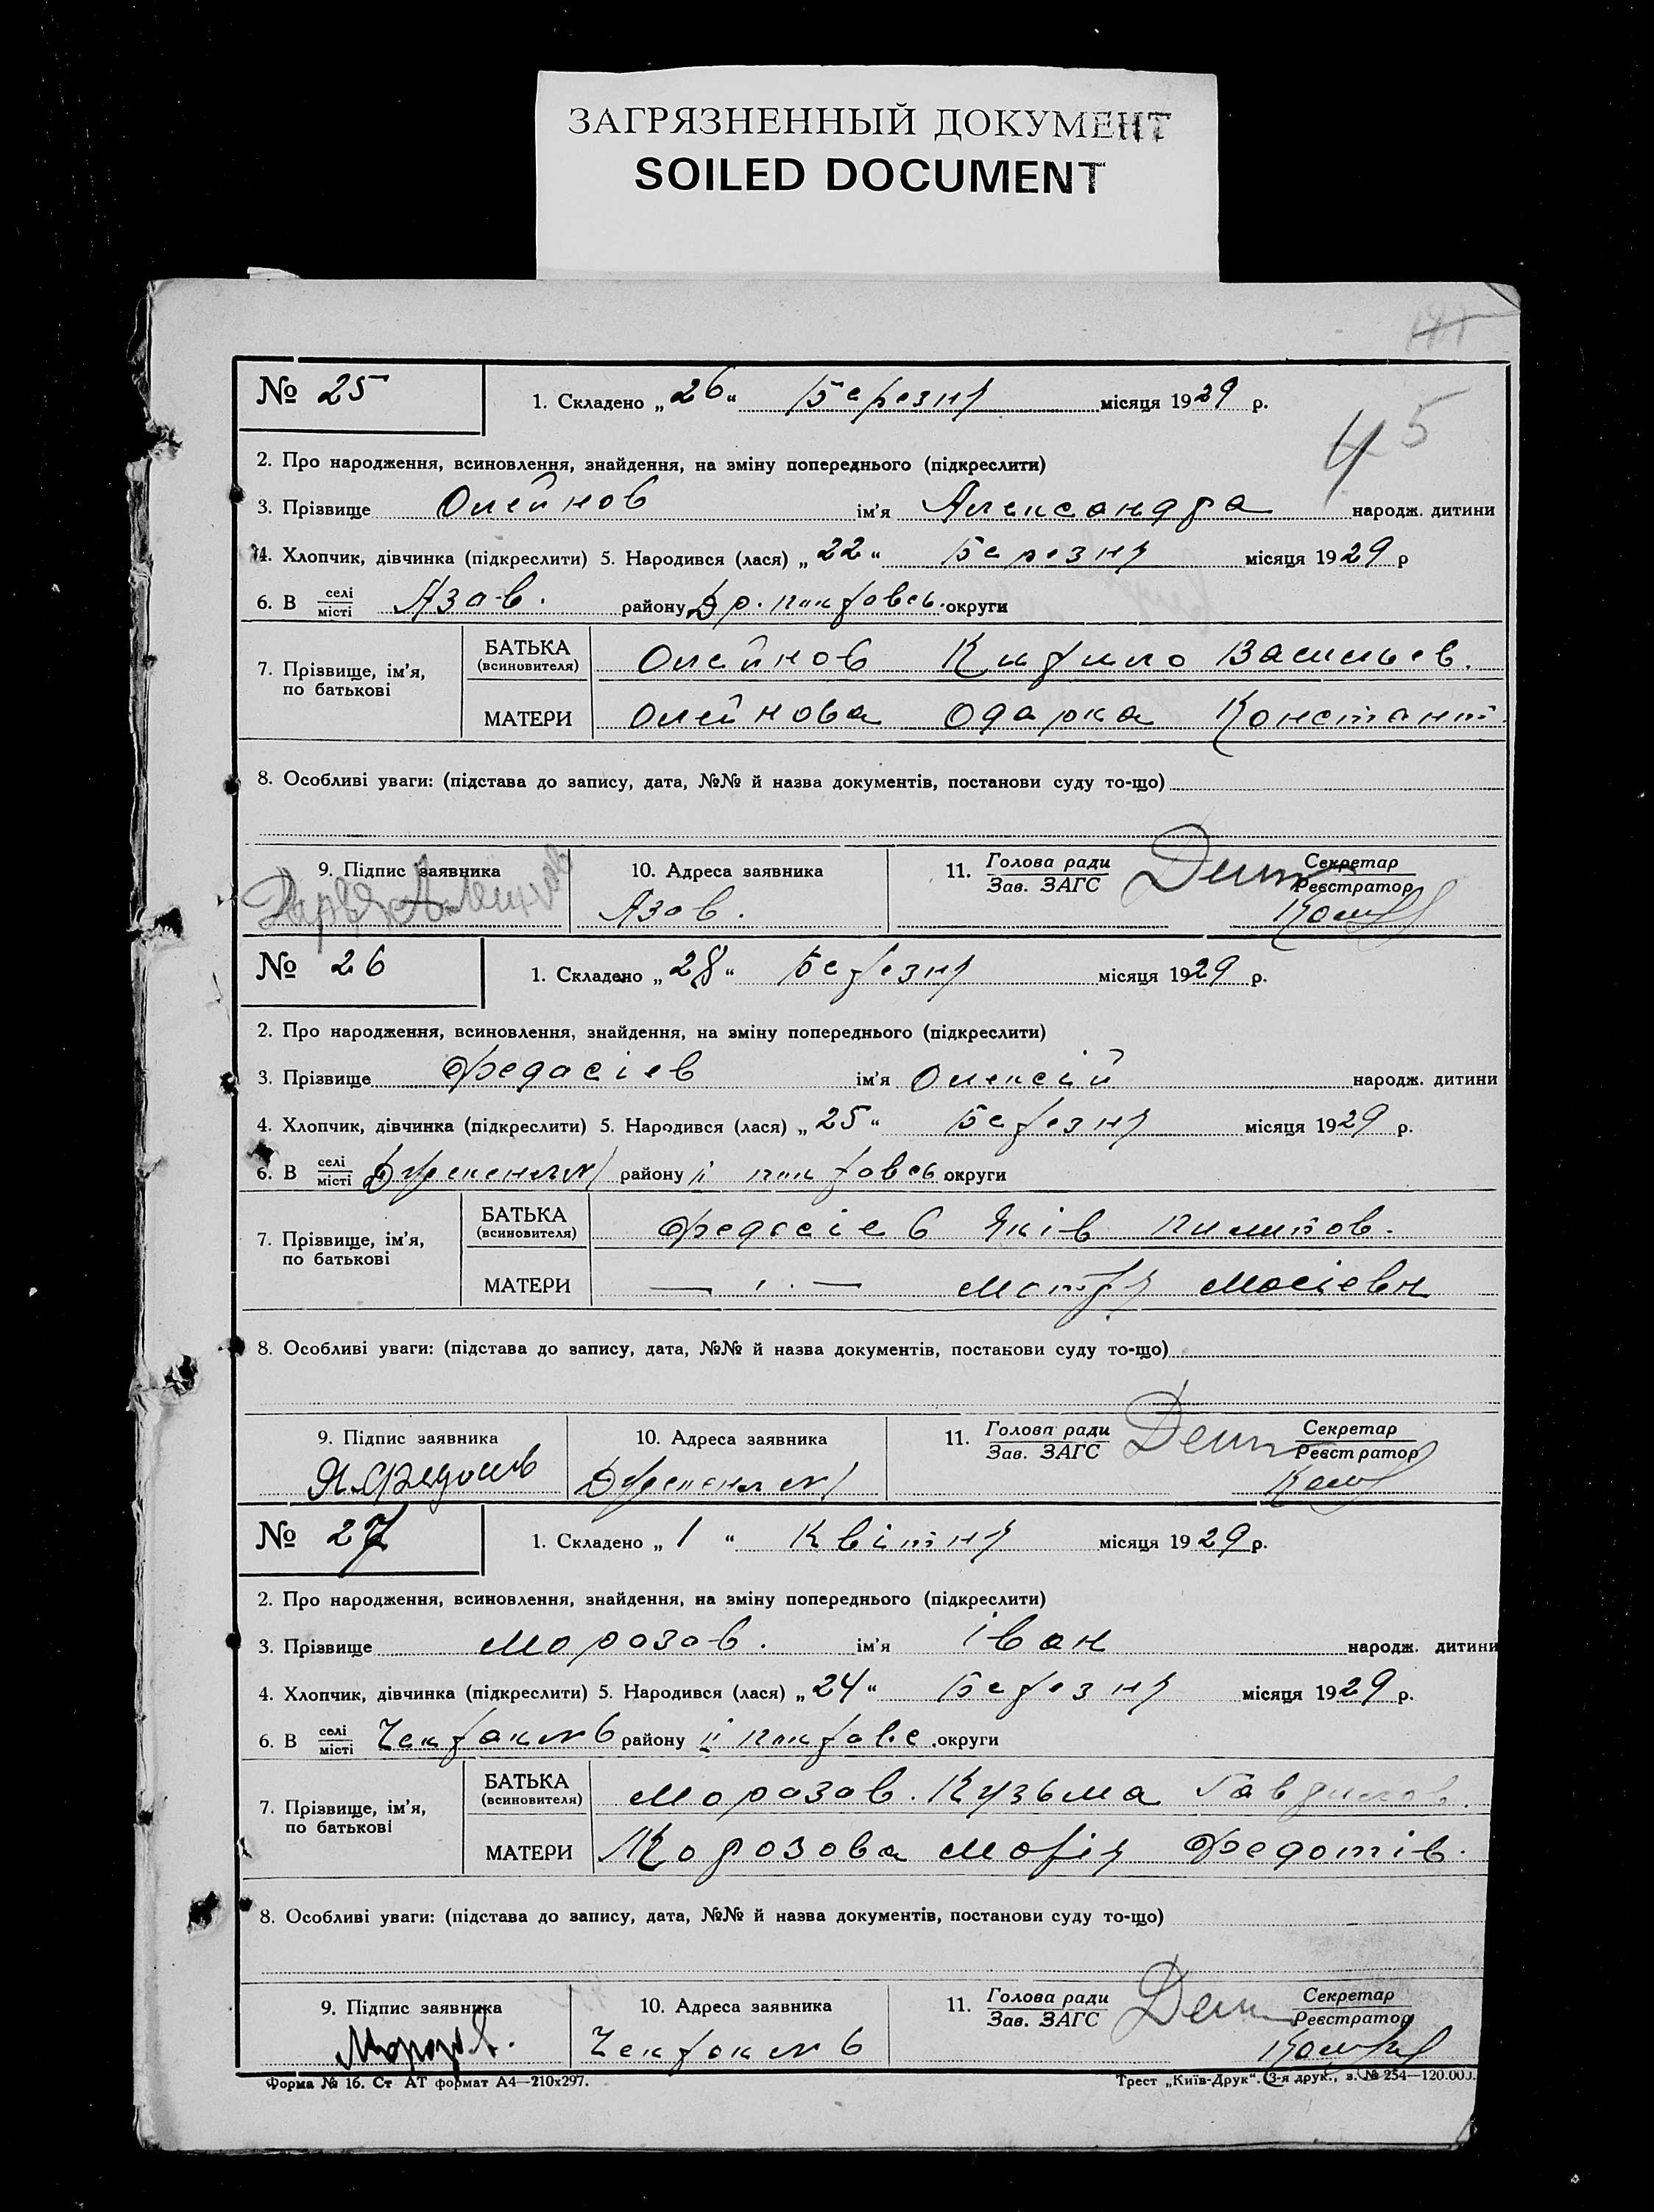 ЗАГРЯЗНЕННЫЙ ДОКУМЕНТ
SOILED DOCUMENT
45
№ 25
1. Складено „26“ Березня місяця 1929 р.
2. Про народження, всиновлення, знайдення, на зміну попереднього (підкреслити)
3. Прізвище Олейнов ім'я Александра народж. дитини
4. Хлопчик, дівчинка (підкреслити) 5. Народився (лася) „22“ Березня місяця 1929 р
6. В селі/місті Азов. району округи
7. Прізвище, ім'я, по батькові
БАТЬКА (всиновителя) Олейнов Кирило Васильев.
МАТЕРИ Олейнова Одарка Констант.
8. Особливі уваги: (підстава до запису, дата, №№ й назва документів, постанови суду то-що)
9. Підпис заявника
10. Адреса заявника
11. Голова ради
Зав. ЗАГС
Секретар
Реєстратор
Азов.
№ 26
1. Складено „28“ Березня місяця 1929 р.
2. Про народження, всиновлення, знайдення, на зміну попереднього (підкреслити)
3. Прізвище Федосієв ім'я Олексій народж. дитини
4. Хлопчик, дівчинка (підкреслити) 5. Народився (лася) „25“ Березня місяця 1929 р.
6. В селі/місті району округи
7. Прізвище, ім'я, по батькові
БАТЬКА (всиновителя) Федосієв Яків Пилипов.
МАТЕРИ — „ — Мотря Мосієвн
8. Особливі уваги: (підстава до запису, дата, №№ й назва документів, постанови суду то-що)
9. Підпис заявника
10. Адреса заявника
11. Голова ради
Зав. ЗАГС
Секретар
Реєстратор
№ 27
1. Складено „1“ Квітня місяця 1929 р.
2. Про народження, всиновлення, знайдення, на зміну попереднього (підкреслити)
3. Прізвище Морозов. ім'я Іван народж. дитини
4. Хлопчик, дівчинка (підкреслити) 5. Народився (лася) „24“ Березня місяця 1929 р.
6. В селі/місті Чекрак № 6 району округи
7. Прізвище, ім'я, по батькові
БАТЬКА (всиновителя) Морозов. Кузьма
МАТЕРИ Морозова Марія Федотів.
8. Особливі уваги: (підстава до запису, дата, №№ й назва документів, постанови суду то-що)
9. Підпис заявника
10. Адреса заявника
11. Голова ради
Зав. ЗАГС
Секретар
Реєстратор
Морозов.
Чекрак № 6
Форма № 16. Ст АТ формат А4—210х297.
Трест „Київ-Друк“. 3-я друк., з. № 254—120.000.